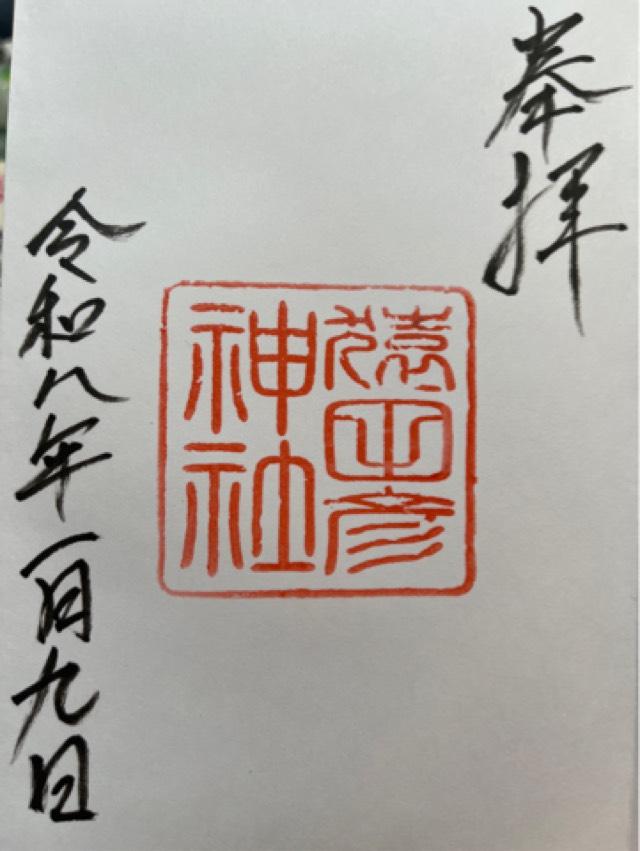 奉拝
猿田彦
神社
令和八年一月九日